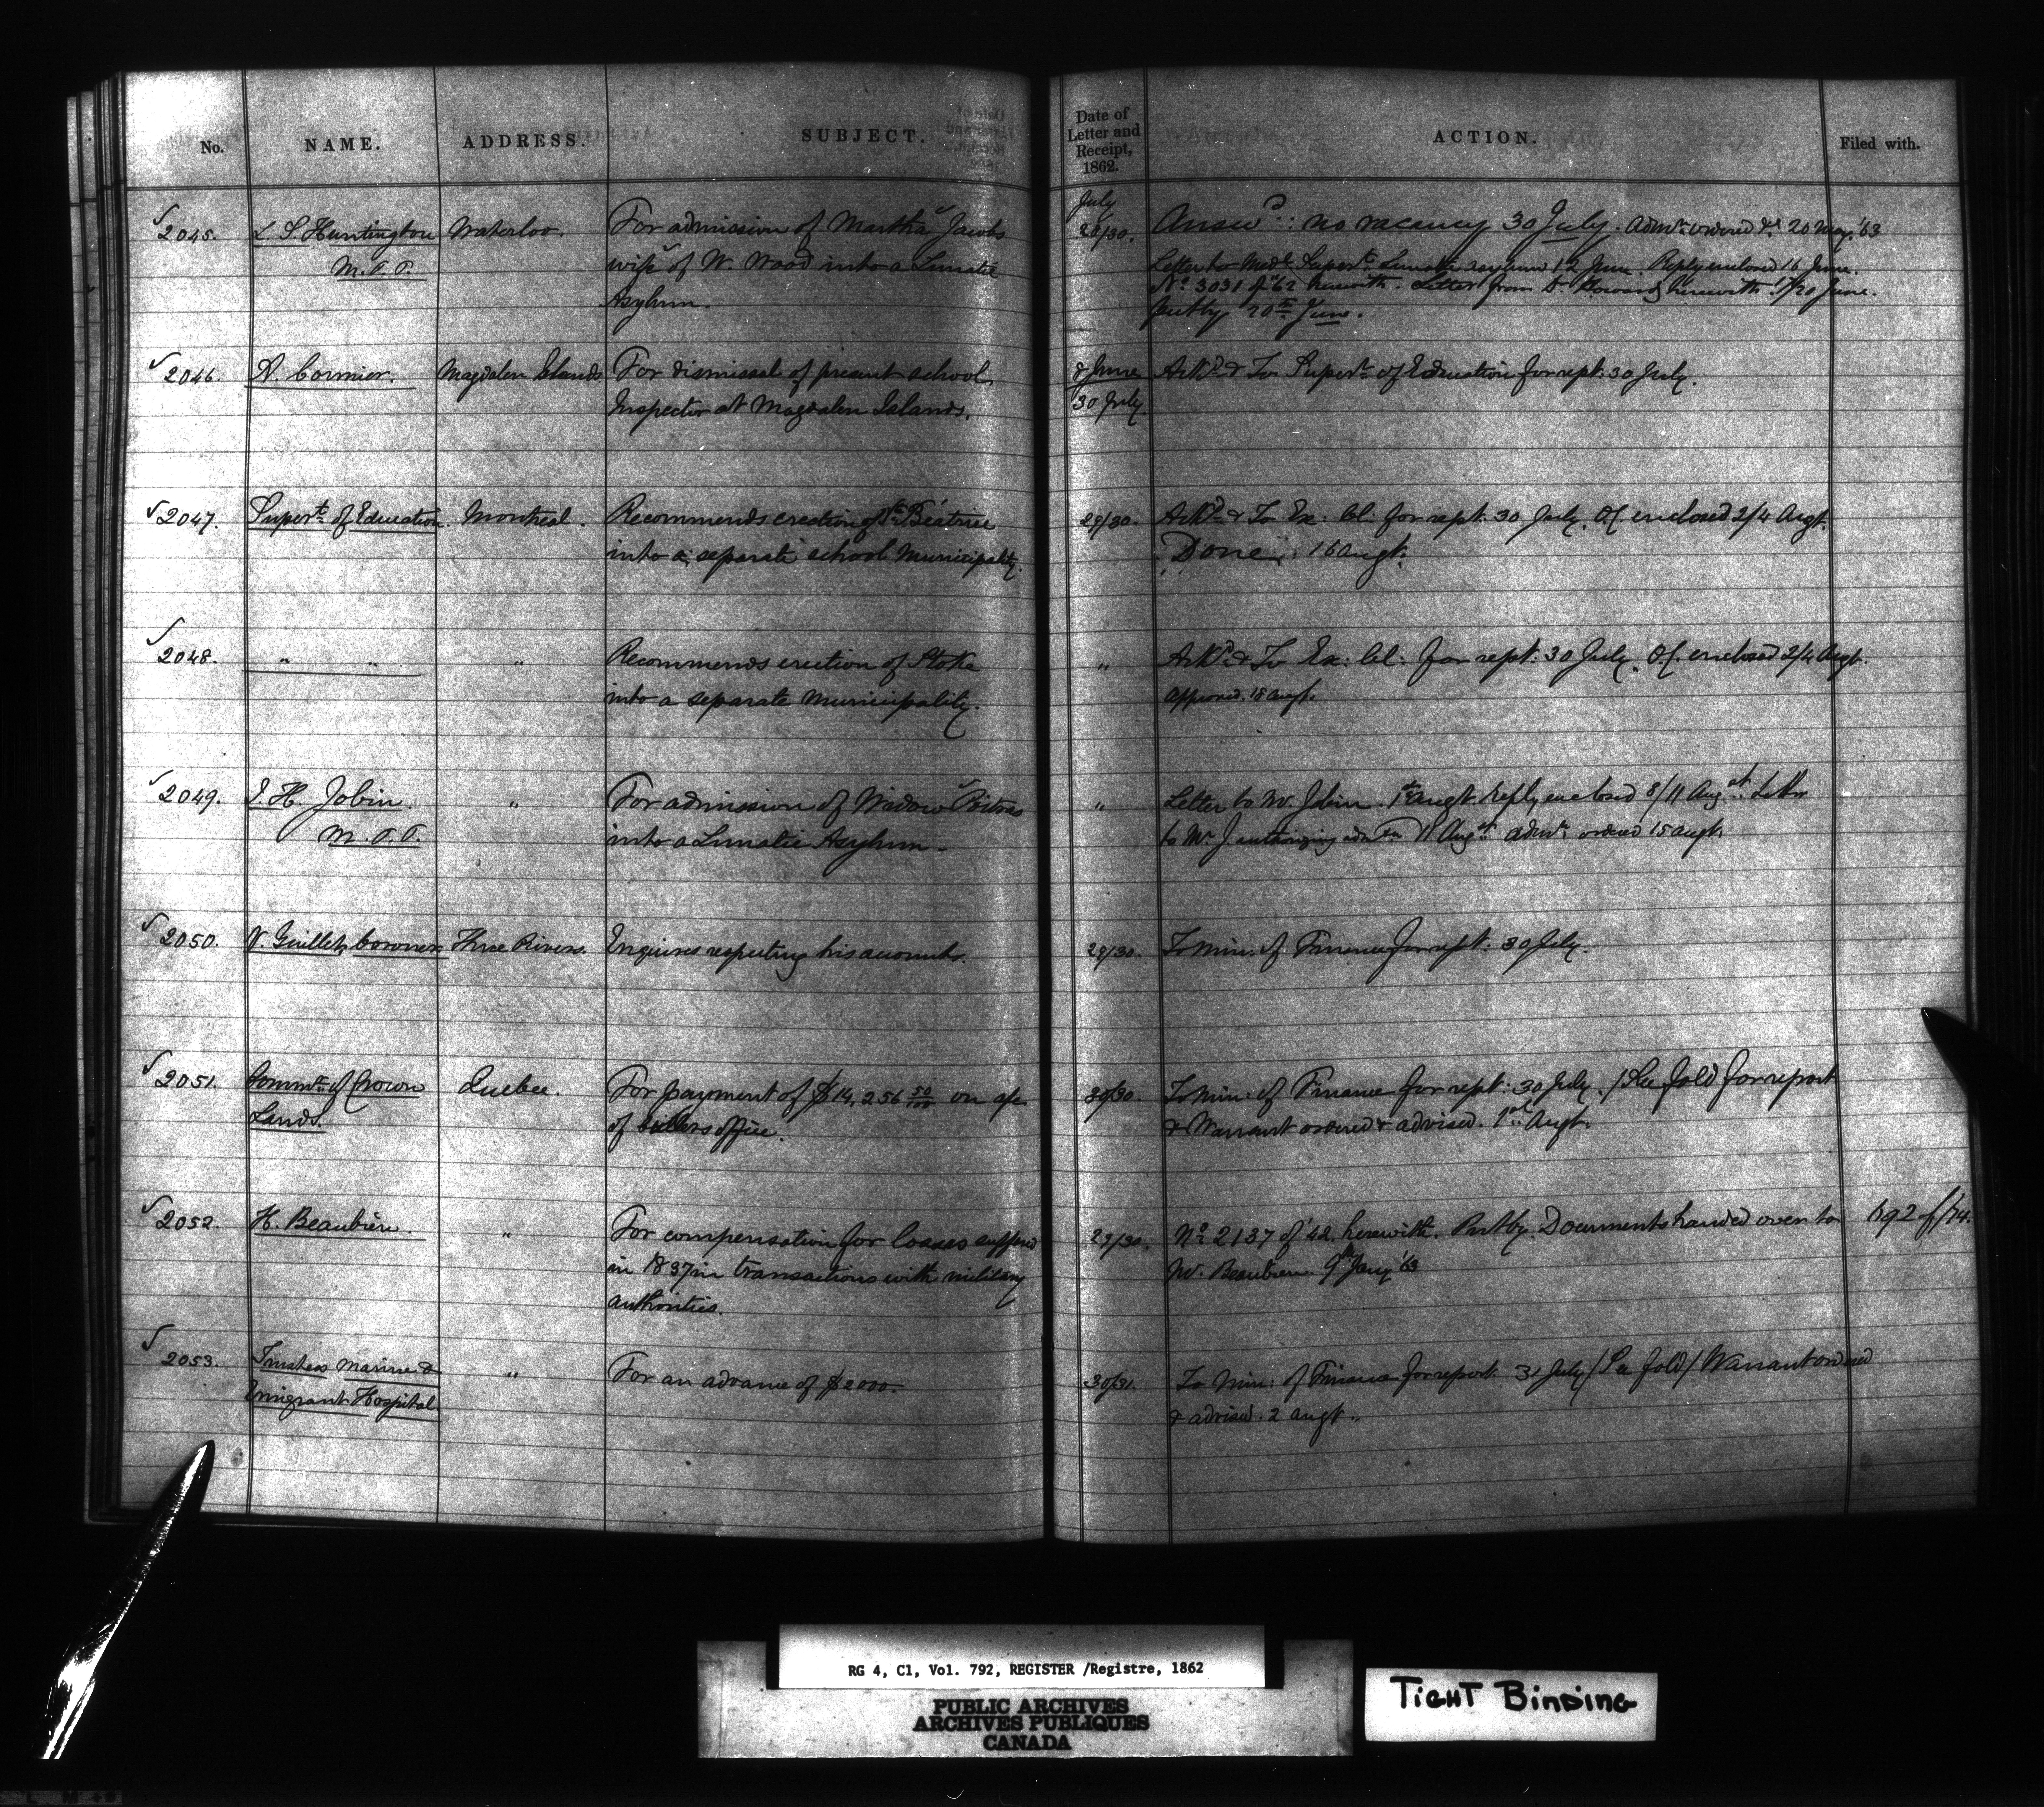 No. NAME. ADDRESS. SUBJECT. Date of Letter and Receipt, 1862. ACTION. Filed with.
July
2045. L S Huntington Waterloo. For admission of Martha Jacobs 28/30. Answd: no vacancy 30 July. Admn. ordered 20 May '63
M.P.P. wife of W. Wood into a Lunatic Letter to Medl. Supert. Lunatic Asylum 12 June. Reply enclosed 16 June.
Asylum. No. 3031 of '62 herewith. Letter from Dr. Howard herewith 19/20 June.
Putby 20th June.
2046. A. Cormier. Magdalen Islands For dismissal of present school 8 June Ackd. & To Supert. of Education for rept: 30 July.
Inspector at Magdalen Islands. 30 July
2047. Supert. of Education. Montreal. Recommends erection of Ste Béatrice 29/30. Ackd. & To Ex: Cl: for rept: 30 July. O/C enclosed 2/4 Augt.
into a separate school Municipality. Done: 16 Augt.
2048. " " " Recommends erection of Stoke " Ackd. & To Ex: Cl: for rept: 30 July. O/C enclosed 2/4 Augt.
into a separate Municipality. Approved. 18 Augt.
2049. J. H. Jobin. " For admission of Widow " Letter to Mr. Jobin 1st Augt. Reply enclosed 8/11 Augst. Letter
M.P.P. into a Lunatic Asylum. to Mr. J. authorizing admn. 11 Augst. Admn. ordered 15 Augt.
2050. V. Guillet, Coroner. Three Rivers. Enquires respecting his accounts. 29/30. To Min: of Finance for rept: 30 July.
2051. Commr. of Crown Quebec. For payment of $14,256 50/100 on a/c 30/30. To Min: of Finance for rept: 30 July. (See fold for report
Lands. of Cullers office. & Warrant ordered & advised. 1st Augt.
2052. H. Beaubien. " For compensation for losses suffered 29/30. No. 2137 of '42 herewith. Putby. Documents handed over to 192 f/74.
in 1837 in transactions with military Mr. Beaubien. 9th Jany '63
authorities.
2053. Trustees Marine & " For an advance of $2000. 30/31. To Min: of Finance for report 31 July (See fold) Warrant ordered
Emigrant Hospital. & advised. 2 Augt.
RG 4, C1, Vol. 792, REGISTER /Registre, 1862
PUBLIC ARCHIVES
ARCHIVES PUBLIQUES
CANADA
TIGHT BINDING